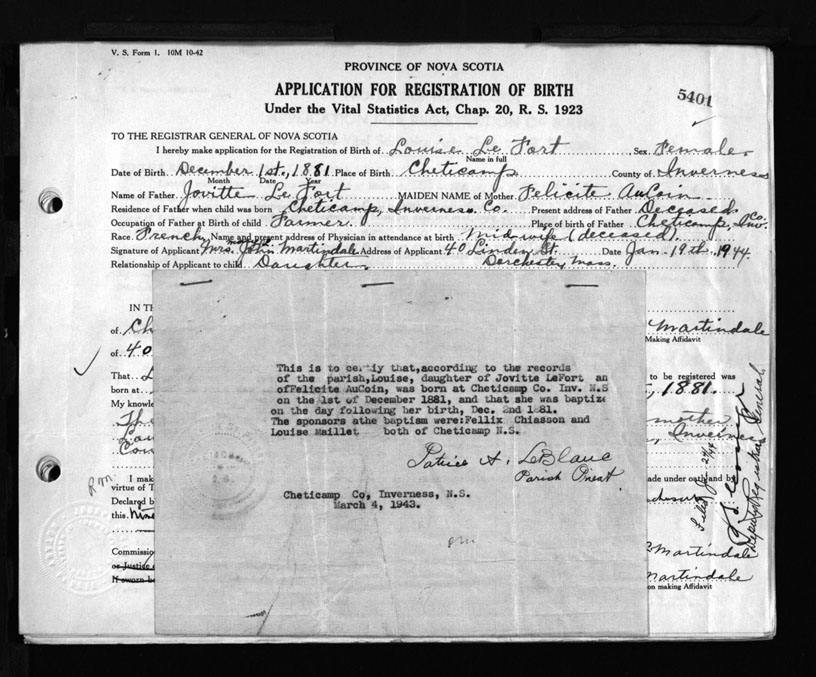 V. S. Form 1. 10M 10-42
PROVINCE OF NOVA SCOTIA
APPLICATION FOR REGISTRATION OF BIRTH
5401
Under the Vital Statistics Act, Chap. 20, R. S. 1923
TO THE REGISTRAR GENERAL OF NOVA SCOTIA
I hereby make application for the Registration of Birth of Louise Le Fort Sex Female
Name in full
Date of Birth December 1st, 1881 Place of Birth Cheticamp County of Inverness
Month Date Year
Name of Father Jovitte Le Fort MAIDEN NAME of Mother Felicite AuCoin
Residence of Father when child was born Cheticamp, Inverness Co. Present address of Father Deceased
Occupation of Father at Birth of child Farmer Place of birth of Father Cheticamp, Inv. Co.
Race French Name and present address of Physician in attendance at birth Midwife (deceased).
Signature of Applicant Mrs. John Martindale Address of Applicant 40 Linden St. Date Jan. 19th, 1944
Relationship of Applicant to child Daughter Dorchester, Mass.
IN TH
of Ch Martindale
Making Affidavit
of 40
That L to be registered was
born at , 1881
My knowle mother
Inverness
This is to certiy that,according to the records
of the parish,Louise, daughter of Jovitte LeFort an
ofFelicite AuCoin, was born at Cheticamp Co. Inv. N.S
on the 1st of December 1881, and that she was baptize
on the day following her birth, Dec. 2nd 1881.
The sponsors athe baptism were:Fellix Chiasson and
Louise Maillet both of Cheticamp N.S.
Patrice A. LeBlanc
Parish Priest
Cheticamp Co, Inverness, N.S.
March 4, 1943.
I mak ade under oath and by
virtue of T
Declared b
this Nine
Commissio Martindale
or Justice
If sworn be Martindale
on making Affidavit
Deputy Registrar General